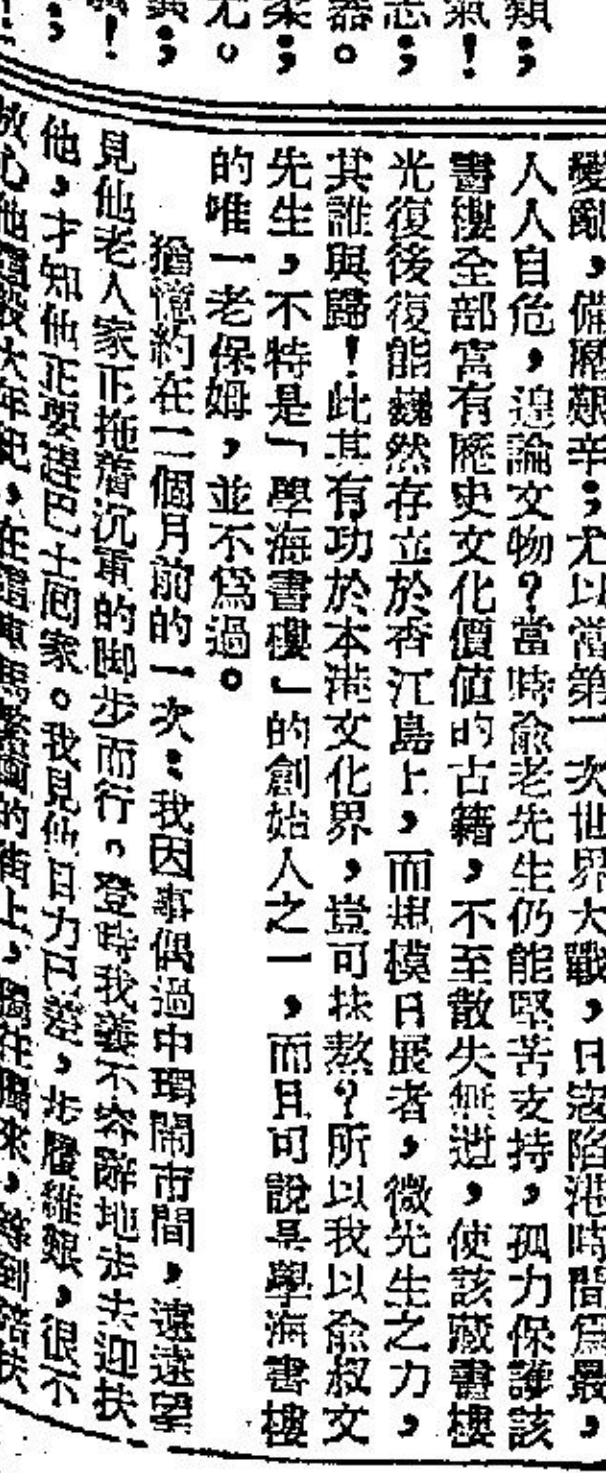 類；
氣！
志；
器。
柔；
尤。
變亂，備歷艱辛；尤以當第一次世界大戰，日寇陷港時間爲最，
人人自危，遑論文物？當時俞老先生仍能堅苦支持，孤力保護該
書樓全部富有歷史文化價值的古籍，不至散失無遺，使該藏書樓
光復後復能巍然存立於香江島上，而規模日展者，微先生之力，
其誰與歸！此其有功於本港文化界，豈可抹煞？所以我以俞叔文
先生，不特是「學海書樓」的創始人之一，而且可說是學海書樓
的唯一老保姆，並不爲過。
猶憶約在二個月前的一次：我因事偶過中環鬧市間，遠遠望
見他老人家正拖着沉重的脚步而行。登時我義不容辭地走去迎扶
他，才知他正要趕巴士回家。我見他目力已差，步履維艱，很不
放心他這般大年紀，在這車馬繁喧的街上，獨往獨來，